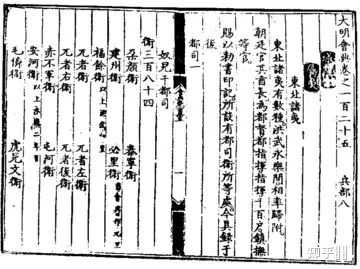 大明會典卷之一百二十五 兵部八
東北諸夷
東北諸夷有數種洪武永樂間相率歸附
朝廷官其酋長為都督都指揮指揮千百戶鎮撫
等官
賜以勅書印記所設有都司衛所等處今具錄于
後
都司一
奴兒干都司
衛三百八十四
朵顏衛 泰寧衛
福餘衛
建州衛 必里衛
兀者衛 兀者左衛
兀者右衛 兀者後衛
赤不罕衛 屯河衛
安河衛
毛憐衛 虎兒文衛